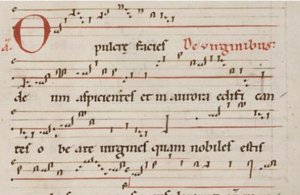 O pulcre facies De virginibus:
de um aspicientes et in aurora edifi can
tes o be ate virgines quam nobiles estis